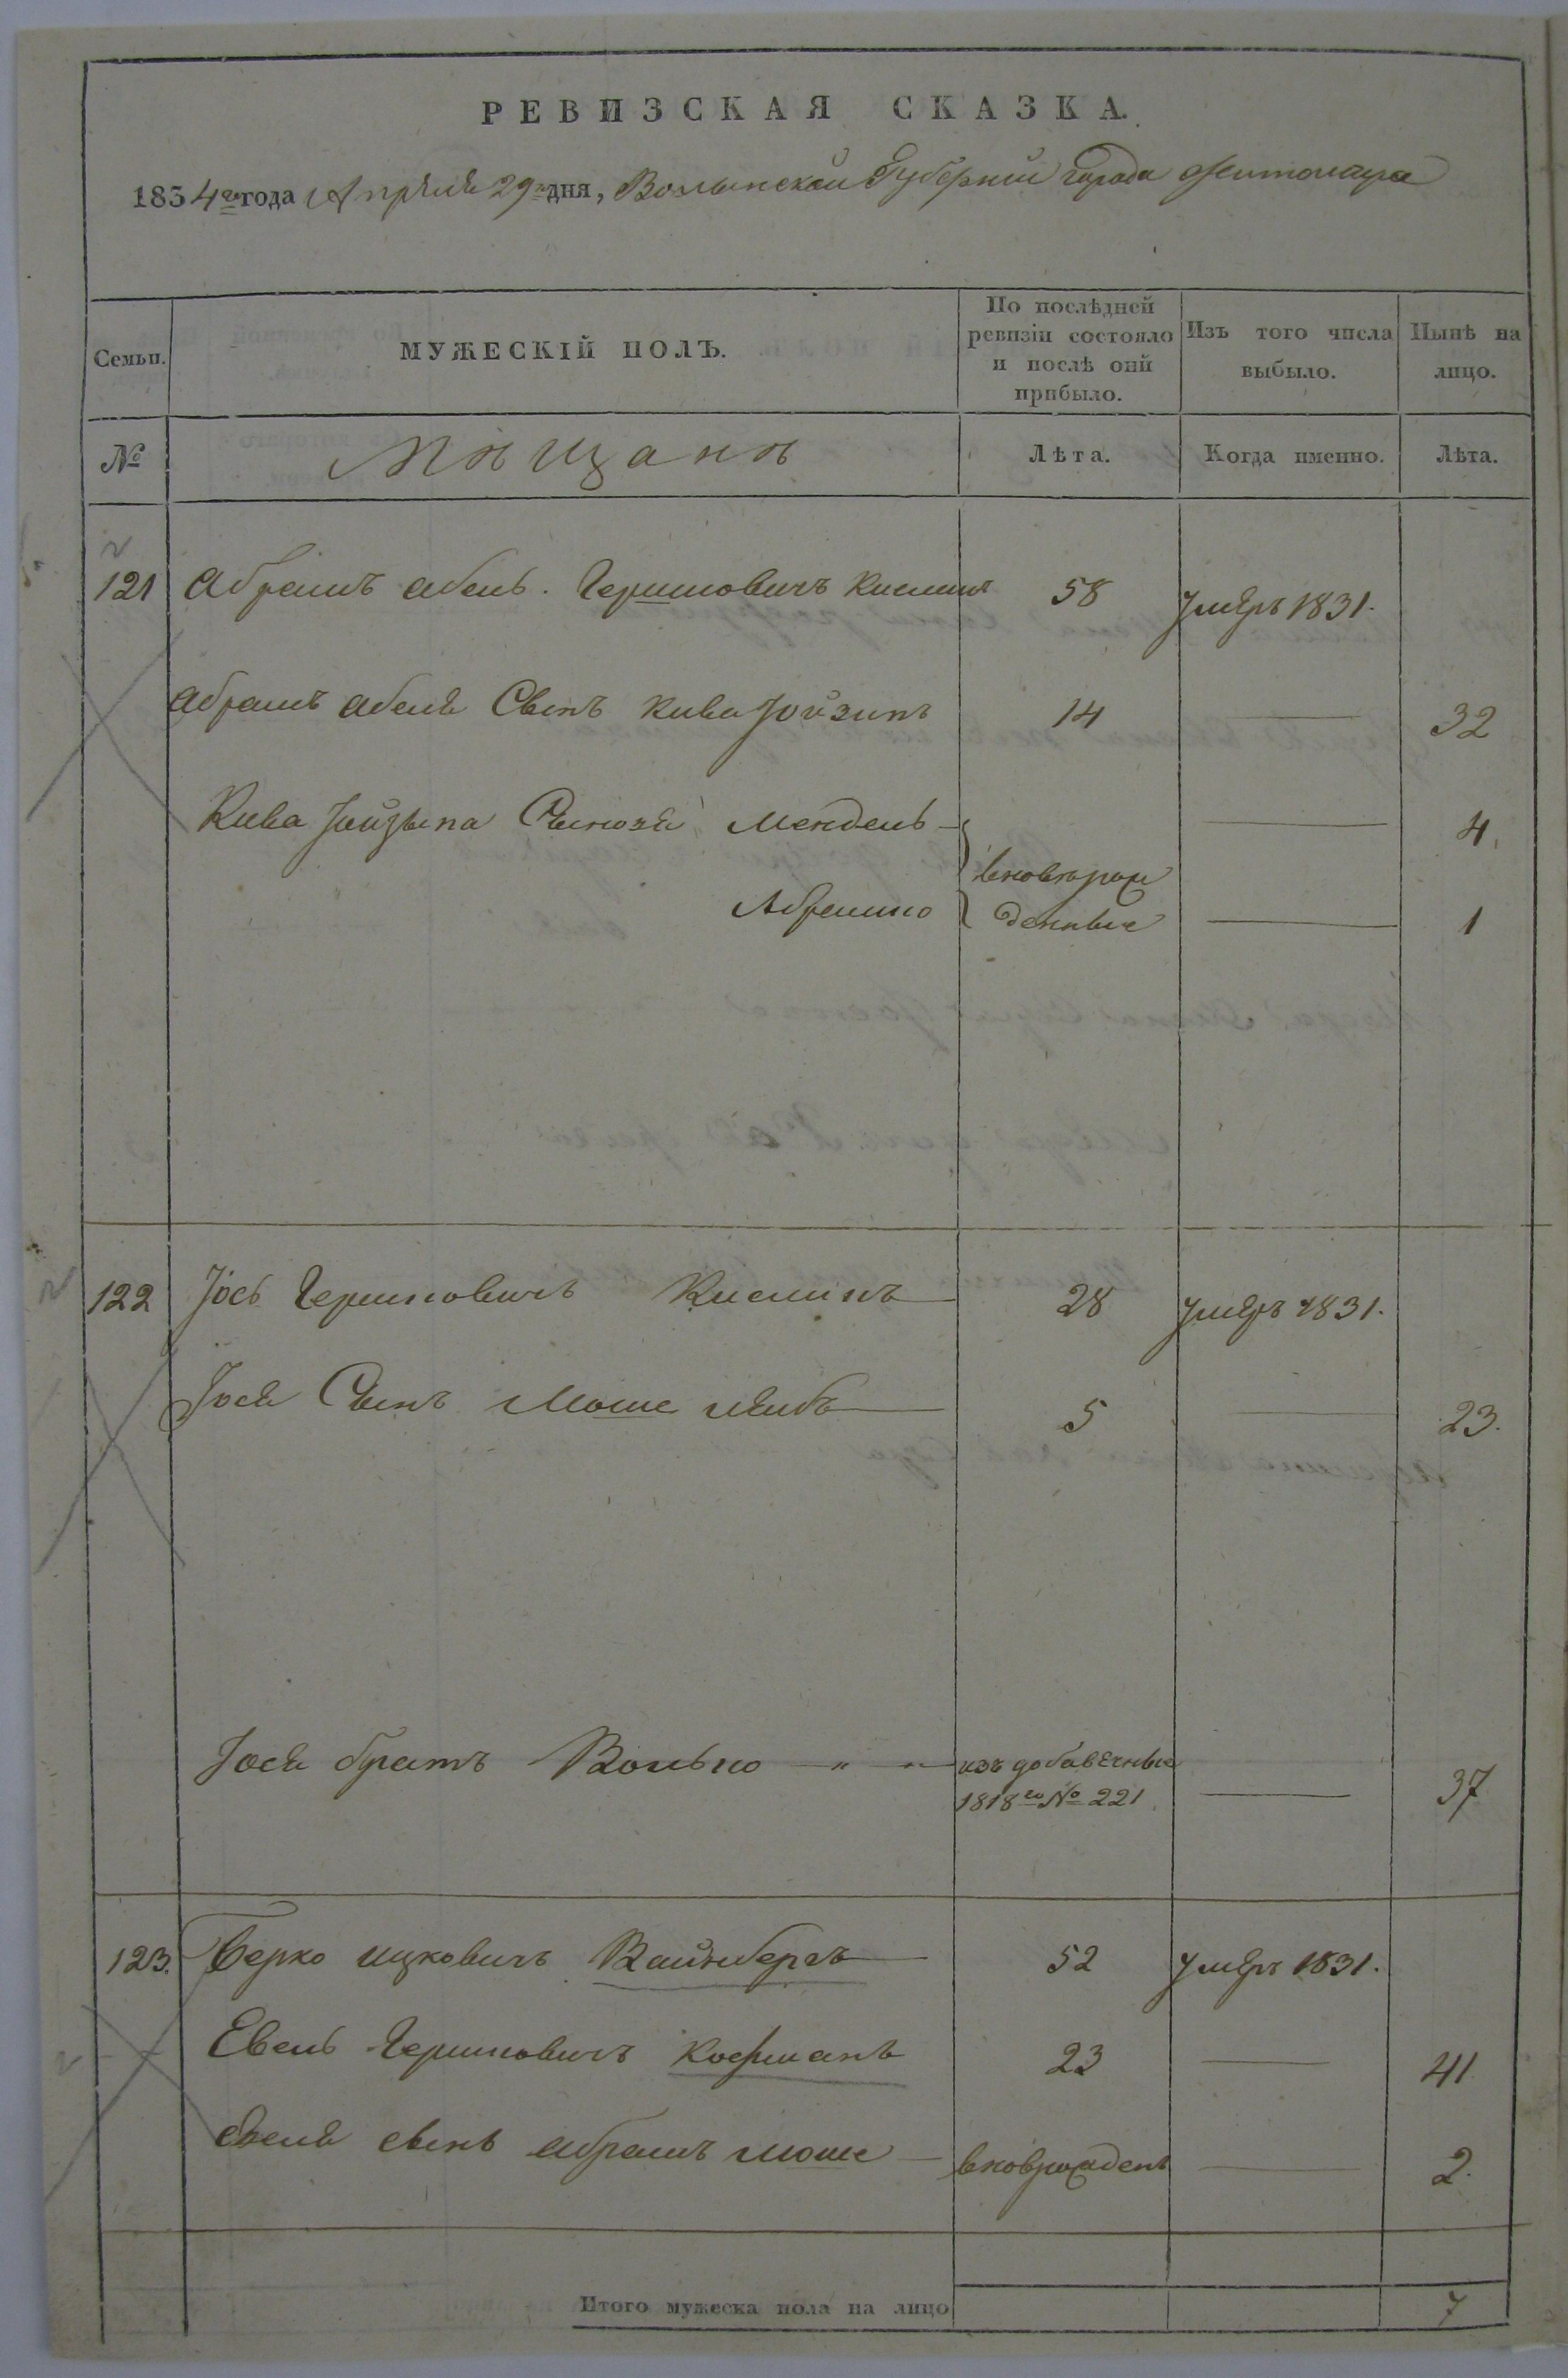 РЕВИЗСКАЯ СКАЗКА.
1834го года Апреля 29 дня, Волынской Губернии города Житомира
Семьи. МУЖЕСКІЙ ПОЛЪ. По послѣдней ревизіи состояло и послѣ оній прибыло. Изъ того числа выбыло. Нынѣ на лицо.
№ Мѣщанѣ Лѣта. Когда именно. Лѣта.
121 Абрамъ Абель Гершковичъ 58 умеръ 1831.
Абрамъ Абеля Сынъ Кива Іойзипъ 14 32
Кива Іойзыпа Сыновя Мендель 4
вноврож
Абрамко денные 1
122 Іось Гершковичъ 28 умеръ 1831.
Іося Сынъ Моше Лейбъ 5 23.
Іося братъ Волько изъ добавечные 37
1818го № 221
123. Берко Ицковичъ Вайнбергъ 52 умеръ 1831.
Евель Гершковичъ Кофманъ 23 41
Евеля сынъ Абрамъ Моше вноврожденъ 2.
Итого мужеска пола на лицо 7